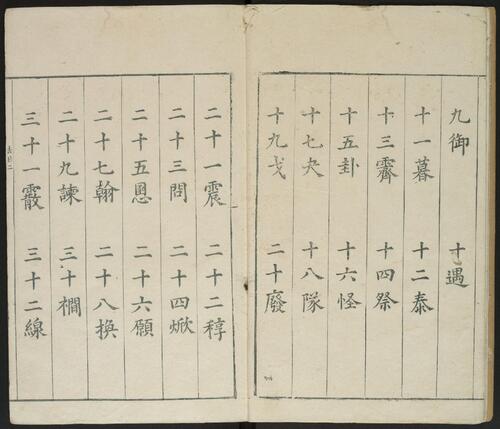 九御 十遇
十一暮 十二泰
十三霽 十四祭
十五卦 十六怪
十七夬 十八隊
十九戈 二十廢
二十一震 二十二稕
二十三問 二十四焮
二十五恩 二十六願
二十七翰 二十八換
二十九諫 三十襉
三十一霰 三十二線